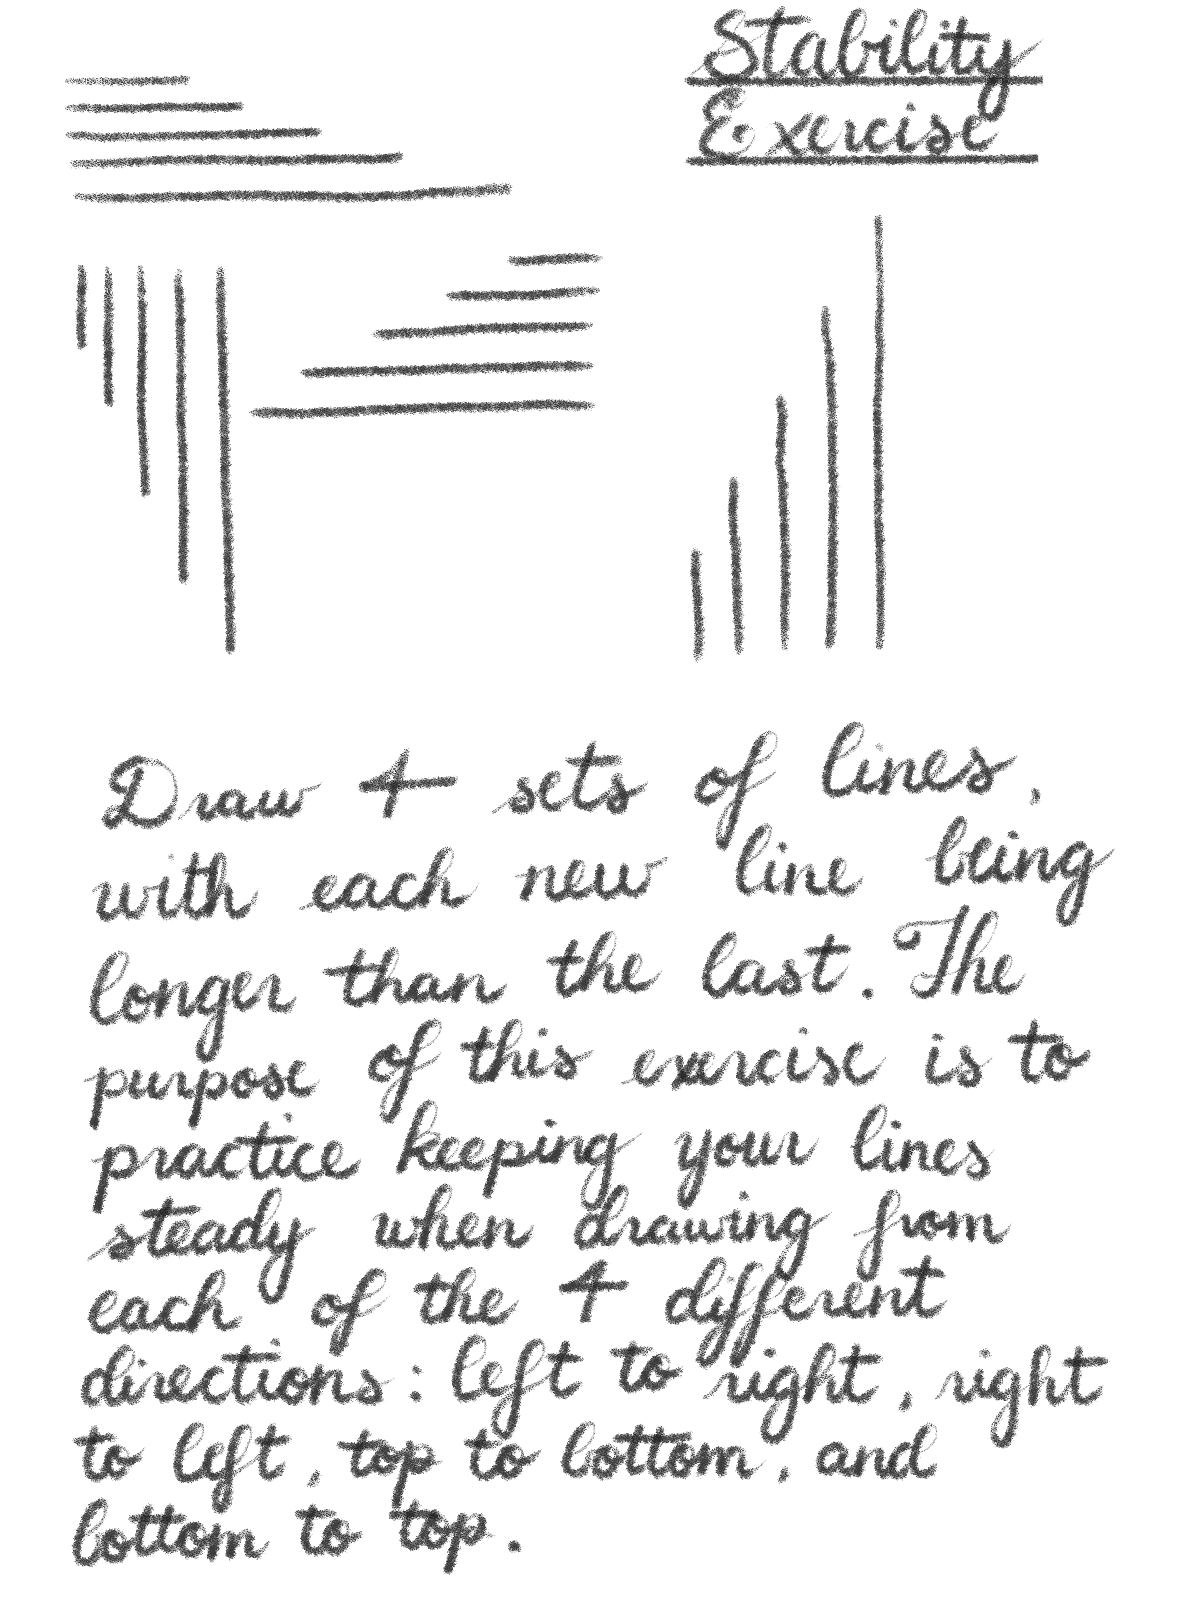 Stability
Exercise
Draw 4 sets of lines,
with each new line being
longer than the last. The
purpose of this exercise is to
practice keeping your lines
steady when drawing from
each of the 4 different
directions: left to right, right
to left, top to bottom, and
bottom to top.